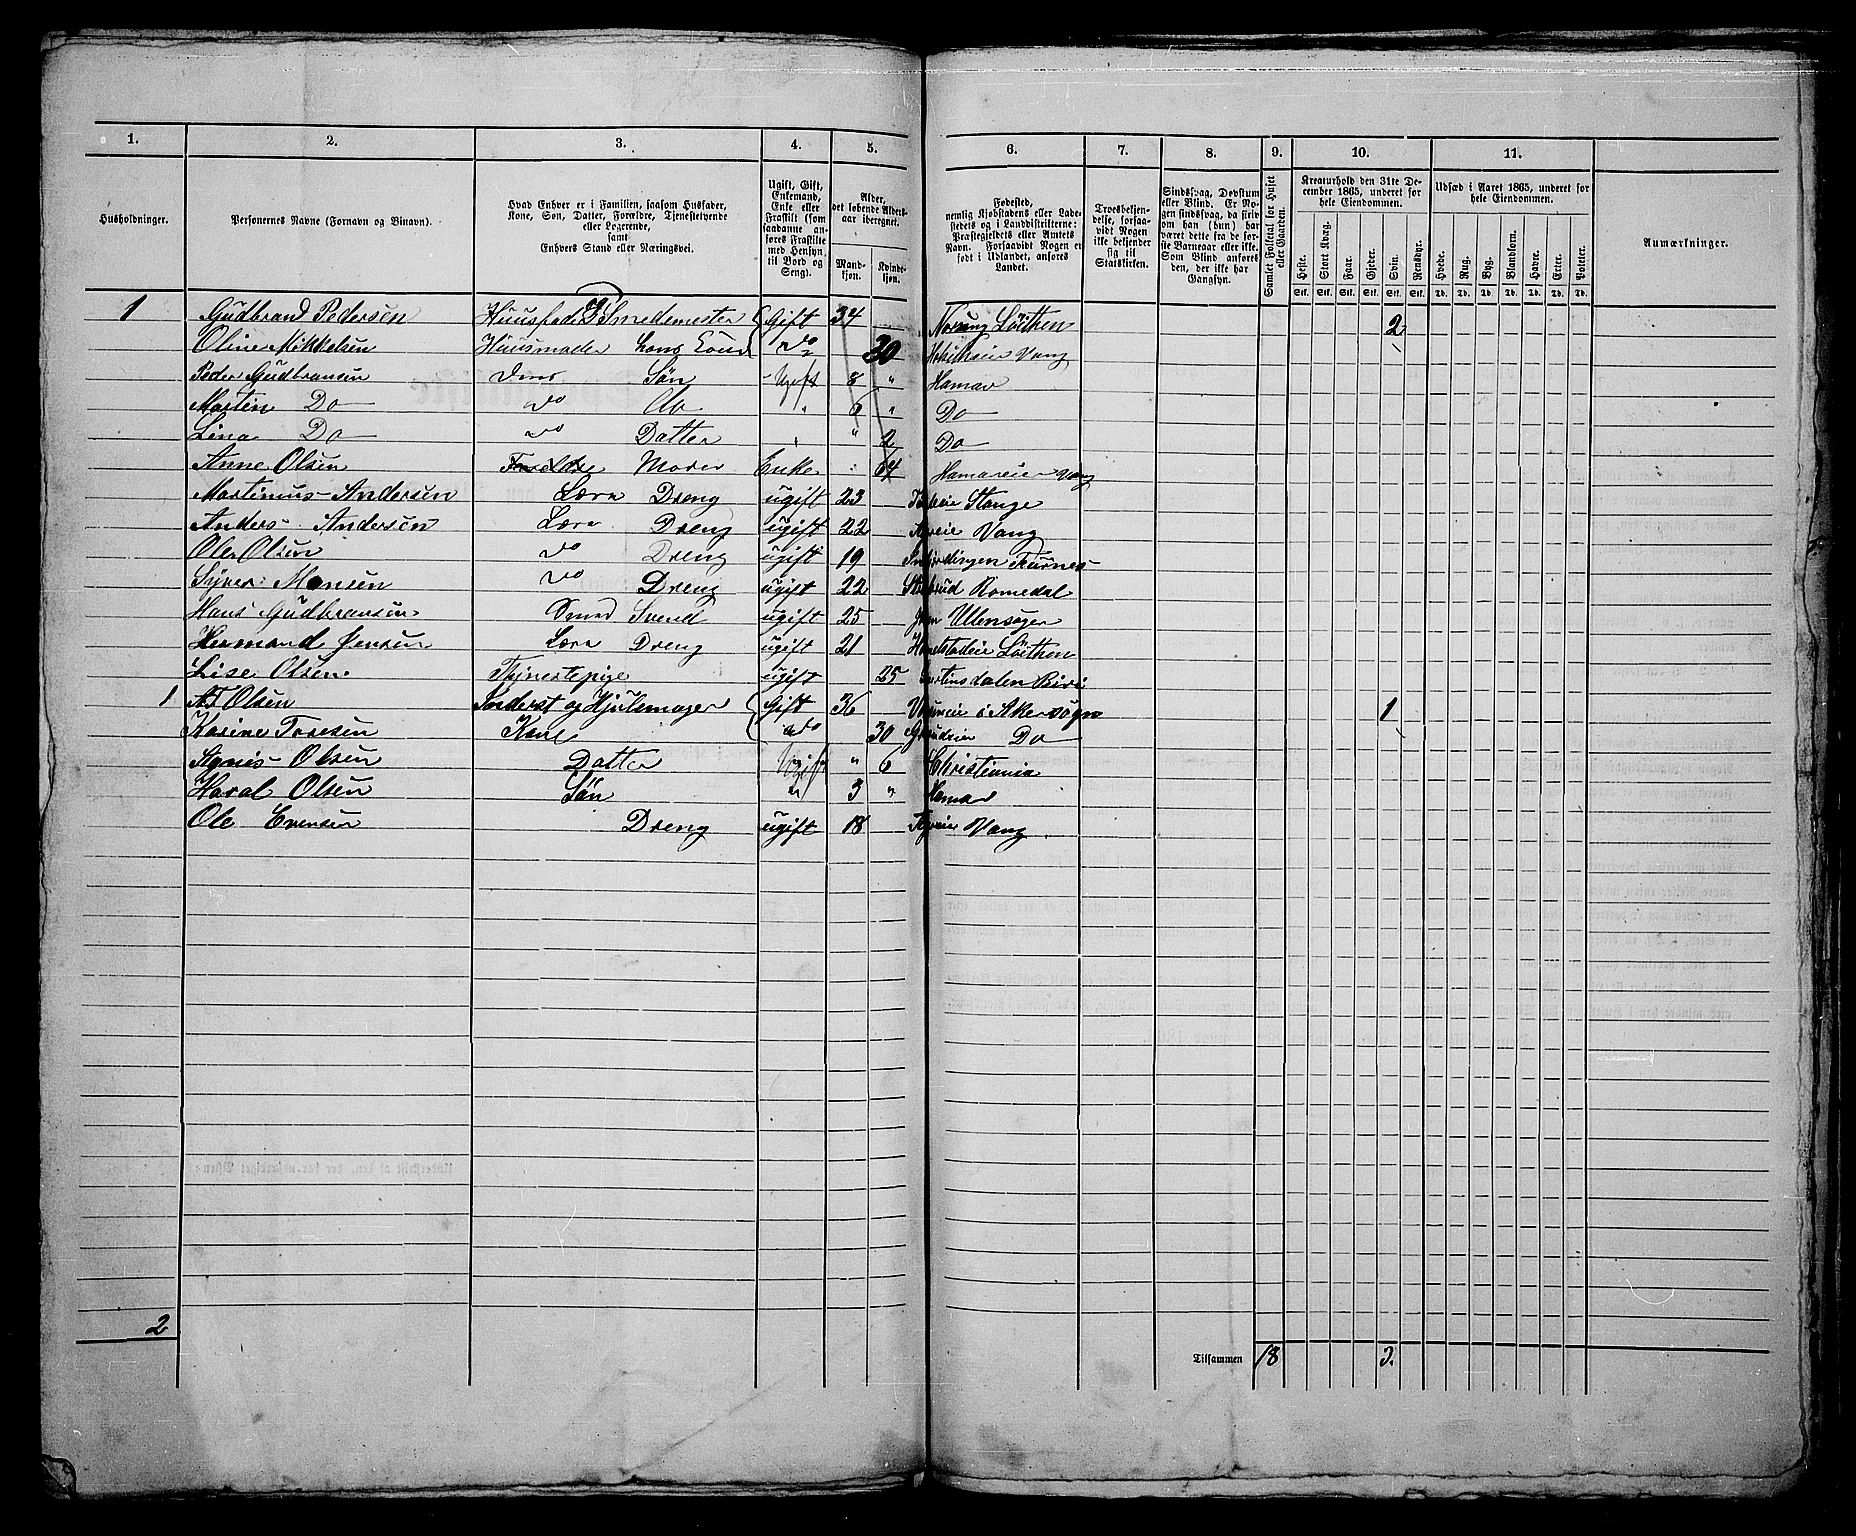 1. 2. 3. 4. 5. 6. 7. 8. 9. 10. 11.
Husholdninger.
Personernes Navne (Fornavn og Binavn).
Hvad Enhver er i Familien, saasom Husfader, Kone, Søn, Datter, Forældre, Tjenestetyende eller Logerende, samt Enhvers Stand eller Næringsvei.
Ugift, Gift, Enkemand, Enke eller Fraskilt (som saadanne anføres Fraskilte med Hensyn til Bord og Seng).
Alder, det løbende Aldersaar iberegnet.
Mandkjøn. Kvindekjøn.
Fødested, nemlig Kjøbstadens eller Ladestedets og i Landdistrikterne: Præstegjeldets eller Amtets Navn. Forsaavidt Nogen er født i Udlandet, anføres Landet.
Troesbekjendelse, forsaavidt Nogen ikke bekjender sig til Statskirken.
Sindssvag, Døvstum eller Blind. Er Nogen sindssvag, da skrives om han (hun) har været dette fra de første Barneaar eller ikke. Som Blind anføres den, der ikke har Gangsyn.
Samlet Folketal for Huset eller Gaarden.
Kreaturhold den 31te December 1865, underet for hele Eiendommen.
Heste. Stort Kvæg. Faar. Gjeder. Svin. Rensdyr.
Stk. Stk. Stk. Stk. Stk. Stk.
Udsæd i Aaret 1865, underet for hele Eiendommen.
Hvede. Rug. Byg. Blandkorn. Havre. Erter. Poteter.
Td. Td. Td. Td. Td. Td. Td.
Anmærkninger.
1 Gudbrand Pedersen Huusfader Smedemester Gift 34 Löithen 2
Oline Mikkelsen Huusmoder hans Kone do 30 Vang
Peder Gudbransen Søn Ugift 8 " Hamar
Martin Do do do " 6 " Do
Lina Do do Datter " " 2 Do
Anne Olsen Moder Enke " 64 Hamareier Vang
Martinus Andersen Lære Dreng ugift 23 Stange
Anders Andersen Lære Dreng ugift 22 Vang
Ole Olsen do Dreng ugift 19 Furnes
Syver Monsen do Dreng ugift 22 Romedal
Hans Gudbransen Smed Svend ugift 25 Ullensager
Hermand Jensen Lære Dreng ugift 21 Löithen
Lise Olsen Tjenestepige ugift 25 Biri
1 Olsen og Hjulemager Gift 36 i Akersogn 1
Karine Tosesen Kone do 30 Do
Agnis Olsen Datter Ugift " 6 Christiania
Haral Olsen Søn " 3 " Hamar
Ole Evensen Dreng ugift 18 Vang
2 Tilsammen 18 3.